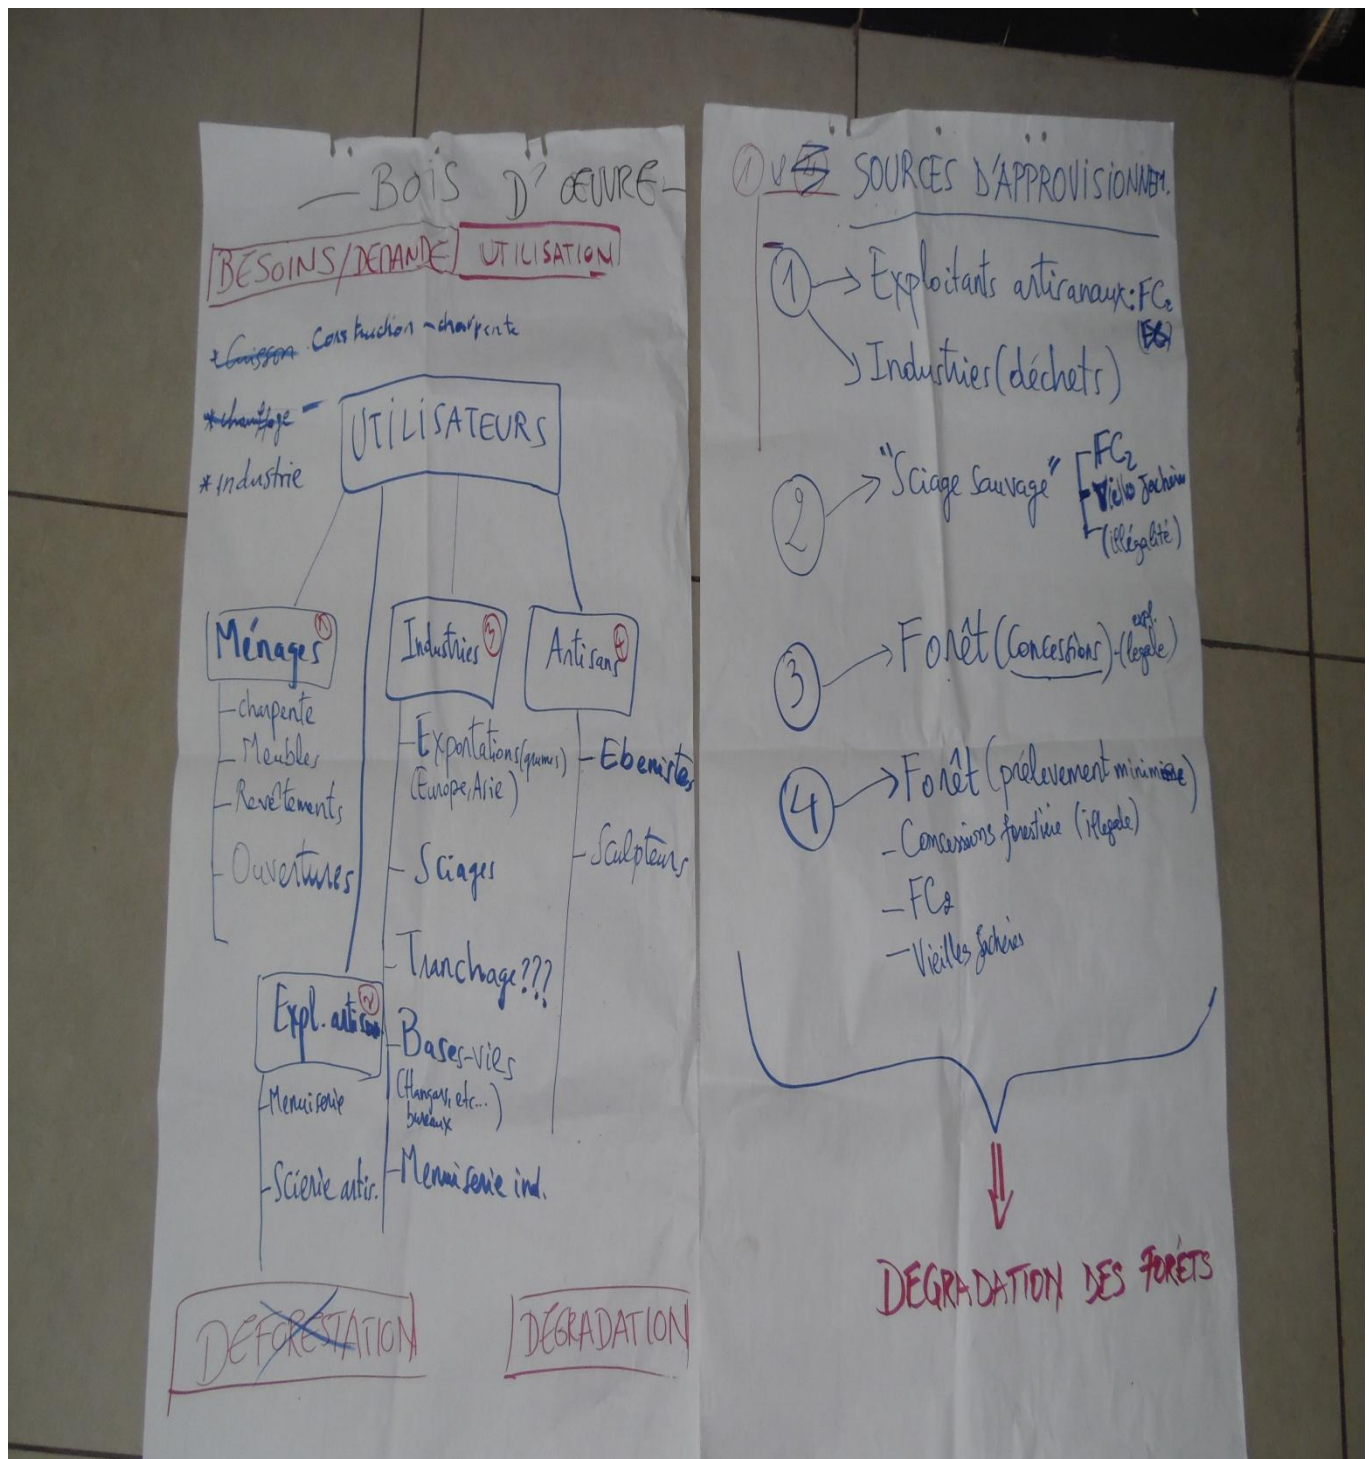 — BOIS D'ŒUVRE —
BESOINS/DEMANDE UTILISATION
* Cuisson Construction - charpente
* chauffage -
* Industrie
UTILISATEURS
Ménages 1
- charpente
- Meubles
- Revêtements
- Ouvertures
Expl. artis 2
- Menuiserie
- Scierie artis.
Industries 3
- Exportations (grumes)
(Europe, Asie)
- Sciages
- Tranchage ???
- Bases-vies
(Hangars, etc...
bureaux
- Menuiserie ind.
Artisans 4
- Ebenistes
- Sculpteurs
DEFORESTATION
DEGRADATION
1 SOURCES D'APPROVISIONNEM.
1 → Exploitants artisanaux: FC2
→ Industries (déchets)
2 → "Sciage Sauvage"
FC2
(illégalité)
3 → Forêt (Concessions) - (expl. legale)
4 → Forêt (prélevement minime)
- Concessions forestière (illegale)
- FC2
- Vieilles jachères
DEGRADATION DES FORÊTS